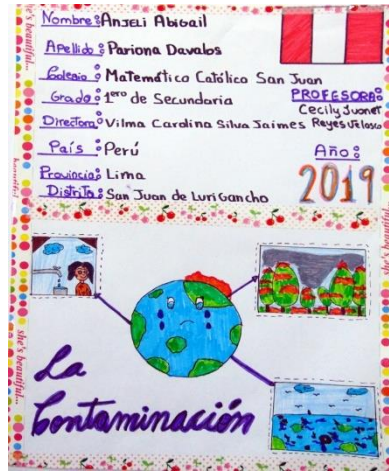 Nombre: Anjeli Abigail
Apellido: Pariona Davalos
Colegio: Matemático Católico San Juan
Grado: 1ero de Secundaria
PROFESORA:
Cecily Jvonet
Reyes Velasco
Directora: Vilma Carolina Silva Jaimes
País: Perú
Año:
2019
Provincia: Lima
Distrito: San Juan de Lurigancho
she's beautiful...
she's beautiful...
La
Contaminación